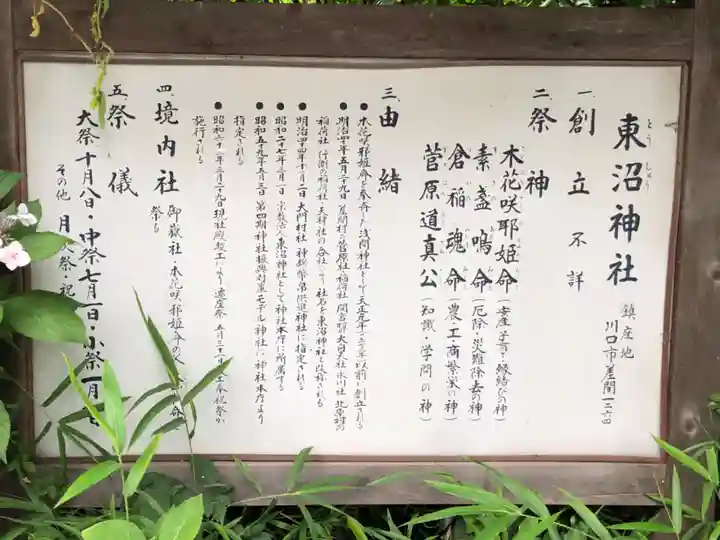 東沼神社
とうしょう
鎮座地
川口市差間一三六四
一、創立不詳
二、祭神
木花咲耶姫命（安産・子育・縁結びの神）
素盞嗚命（厄除・災難除去の神）
倉稲魂命（農・工・商繁栄の神）
菅原道真公（知識・学問の神）
三、由緒
● 木花咲耶姫命を奉斎し浅間神社として天正九年
以前に創立される
● 明治四十年五月二十九日 差間村の菅原社 稲荷社
稲荷社 行衛の稲荷社 天神社の合祀により社名を東沼神社と改称される
● 明治四十四年十月二日 大門村村社 神饌幣帛供進神社に指定される
● 昭和二十七年三月一日 宗教法人東沼神社として神社本庁に所属する
● 昭和五十九年五月三日 第四期神社振興対策モデル神社に神社本庁より
指定される
● 昭和六十二年三月二十九日 現社殿竣工により遷座祭 五月三
竣工奉祝祭が
施行される
四、境内社
御嶽社・木花咲耶姫命
命
祭る
五、祭儀
大祭 十月八日・中祭 七月一日・小祭 一月
その他 月
祭・祝